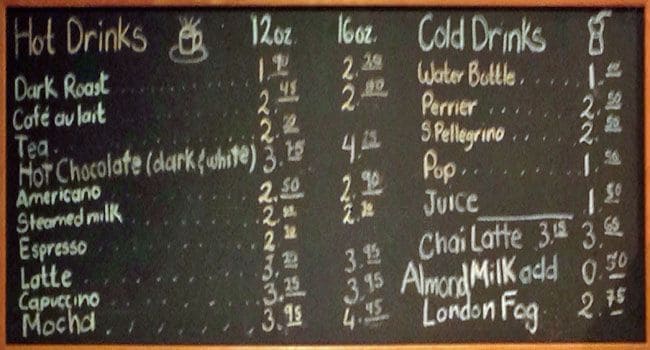 Hot Drinks 12oz. 16oz.
Dark Roast 1.90
Café au lait 2.45
Tea
Hot Chocolate (dark & white) 3.75
Americano 2.50 2.90
Steamed milk
Espresso
Latte 3.95
Capuccino 3.25 3.95
Mocha 3.95 4.45
Cold Drinks
Water Bottle
Perrier 2.50
S Pellegrino 2.50
Pop
Juice 1.50
Chai Latte 3.15 3.65
Almond Milk add 0.50
London Fog 2.75